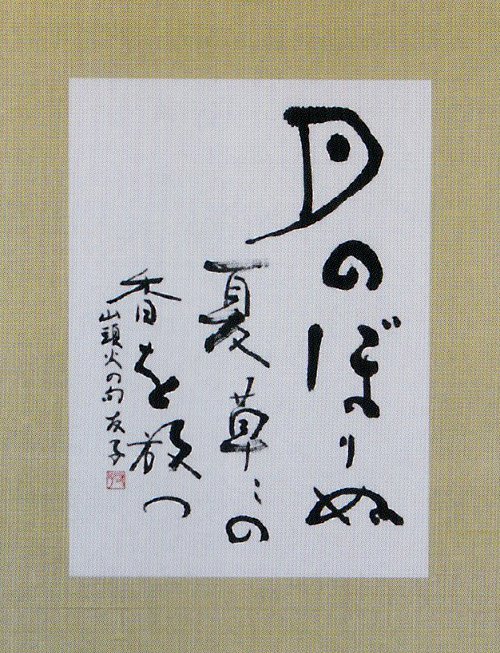 月のぼりぬ
夏草〻の
香を放つ
山頭火の句 友子